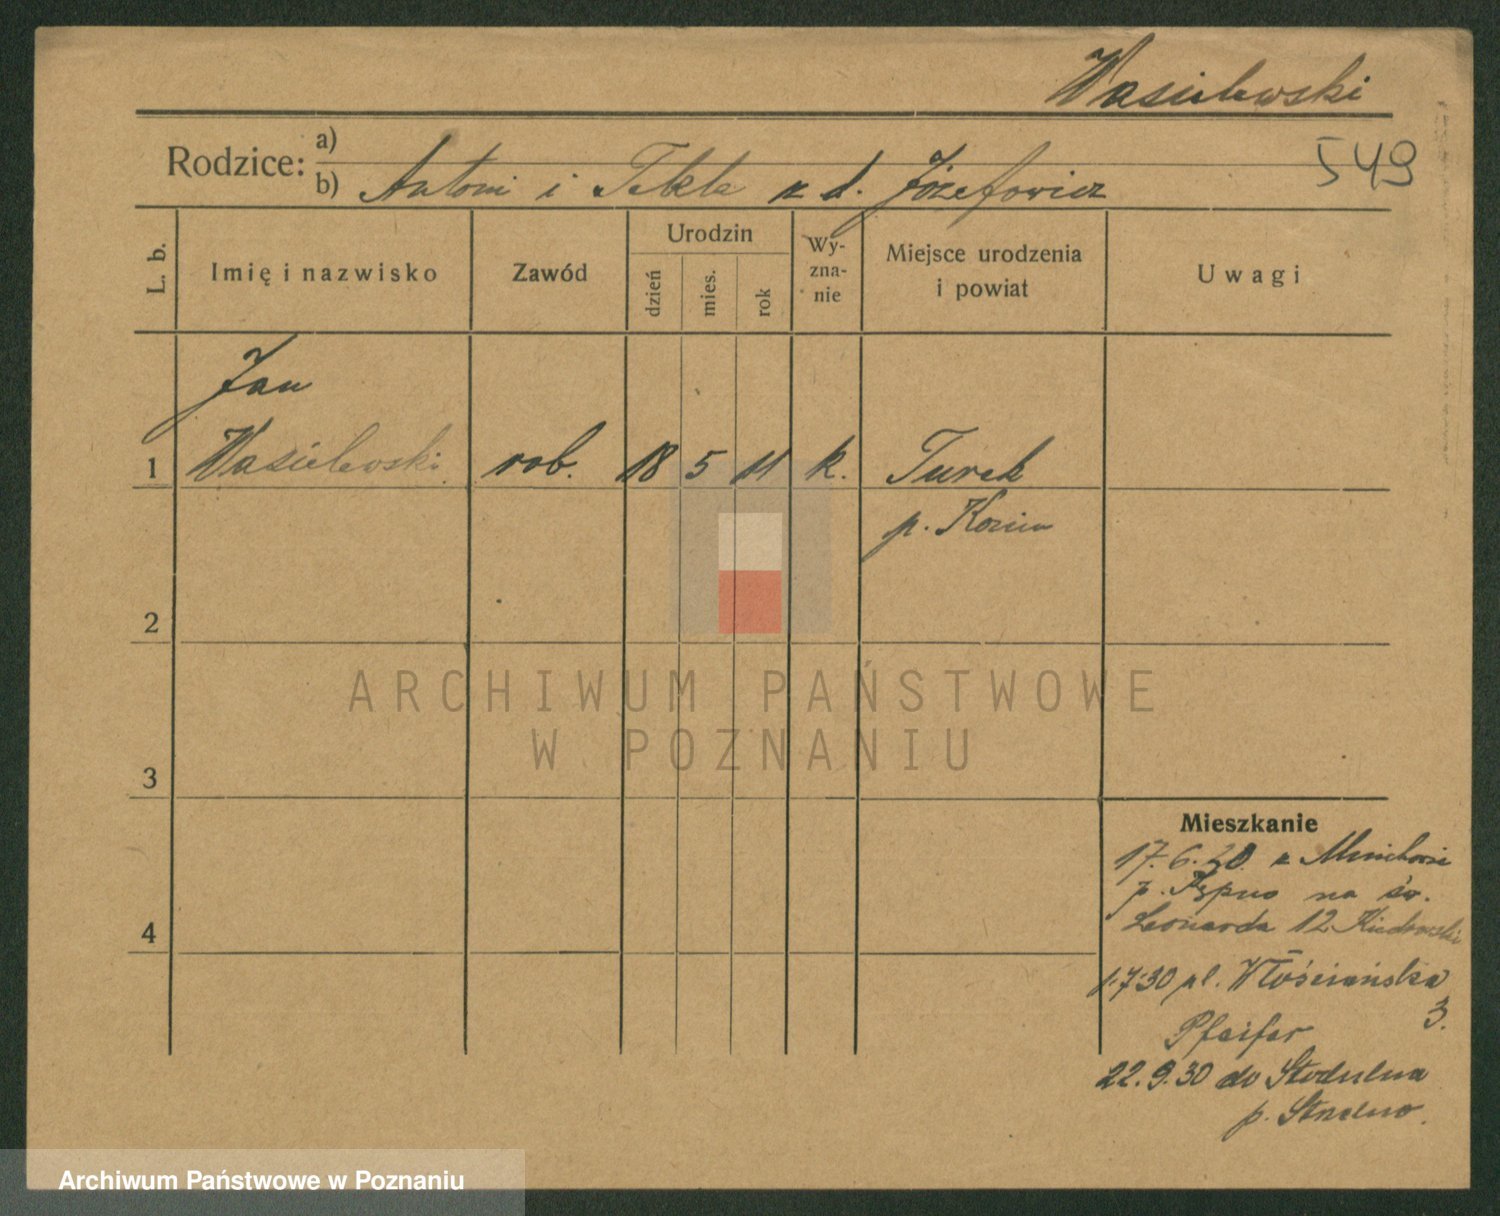 Wasielewski
549
Rodzice: a)
b) Antoni i Tekla z d. Józefowicz
L. b.
Imię i nazwisko
Zawód
Urodzin
dzień
mies.
rok
Wy-
zna-
nie
Miejsce urodzenia
i powiat
Uwagi
Jan
1 Wasielewski rob. 18 5 11 k. Turek
p. Konin
2
3
4
ARCHIWUM PAŃSTWOWE
W POZNANIU
Mieszkanie
17.6.20. z
p. Kępno na św.
Leonarda 12.
1.7.30 pl. Włościańska
3.
Pfeifer
22.9.30 do Stodulna
p. Strzelno.
Archiwum Państwowe w Poznaniu